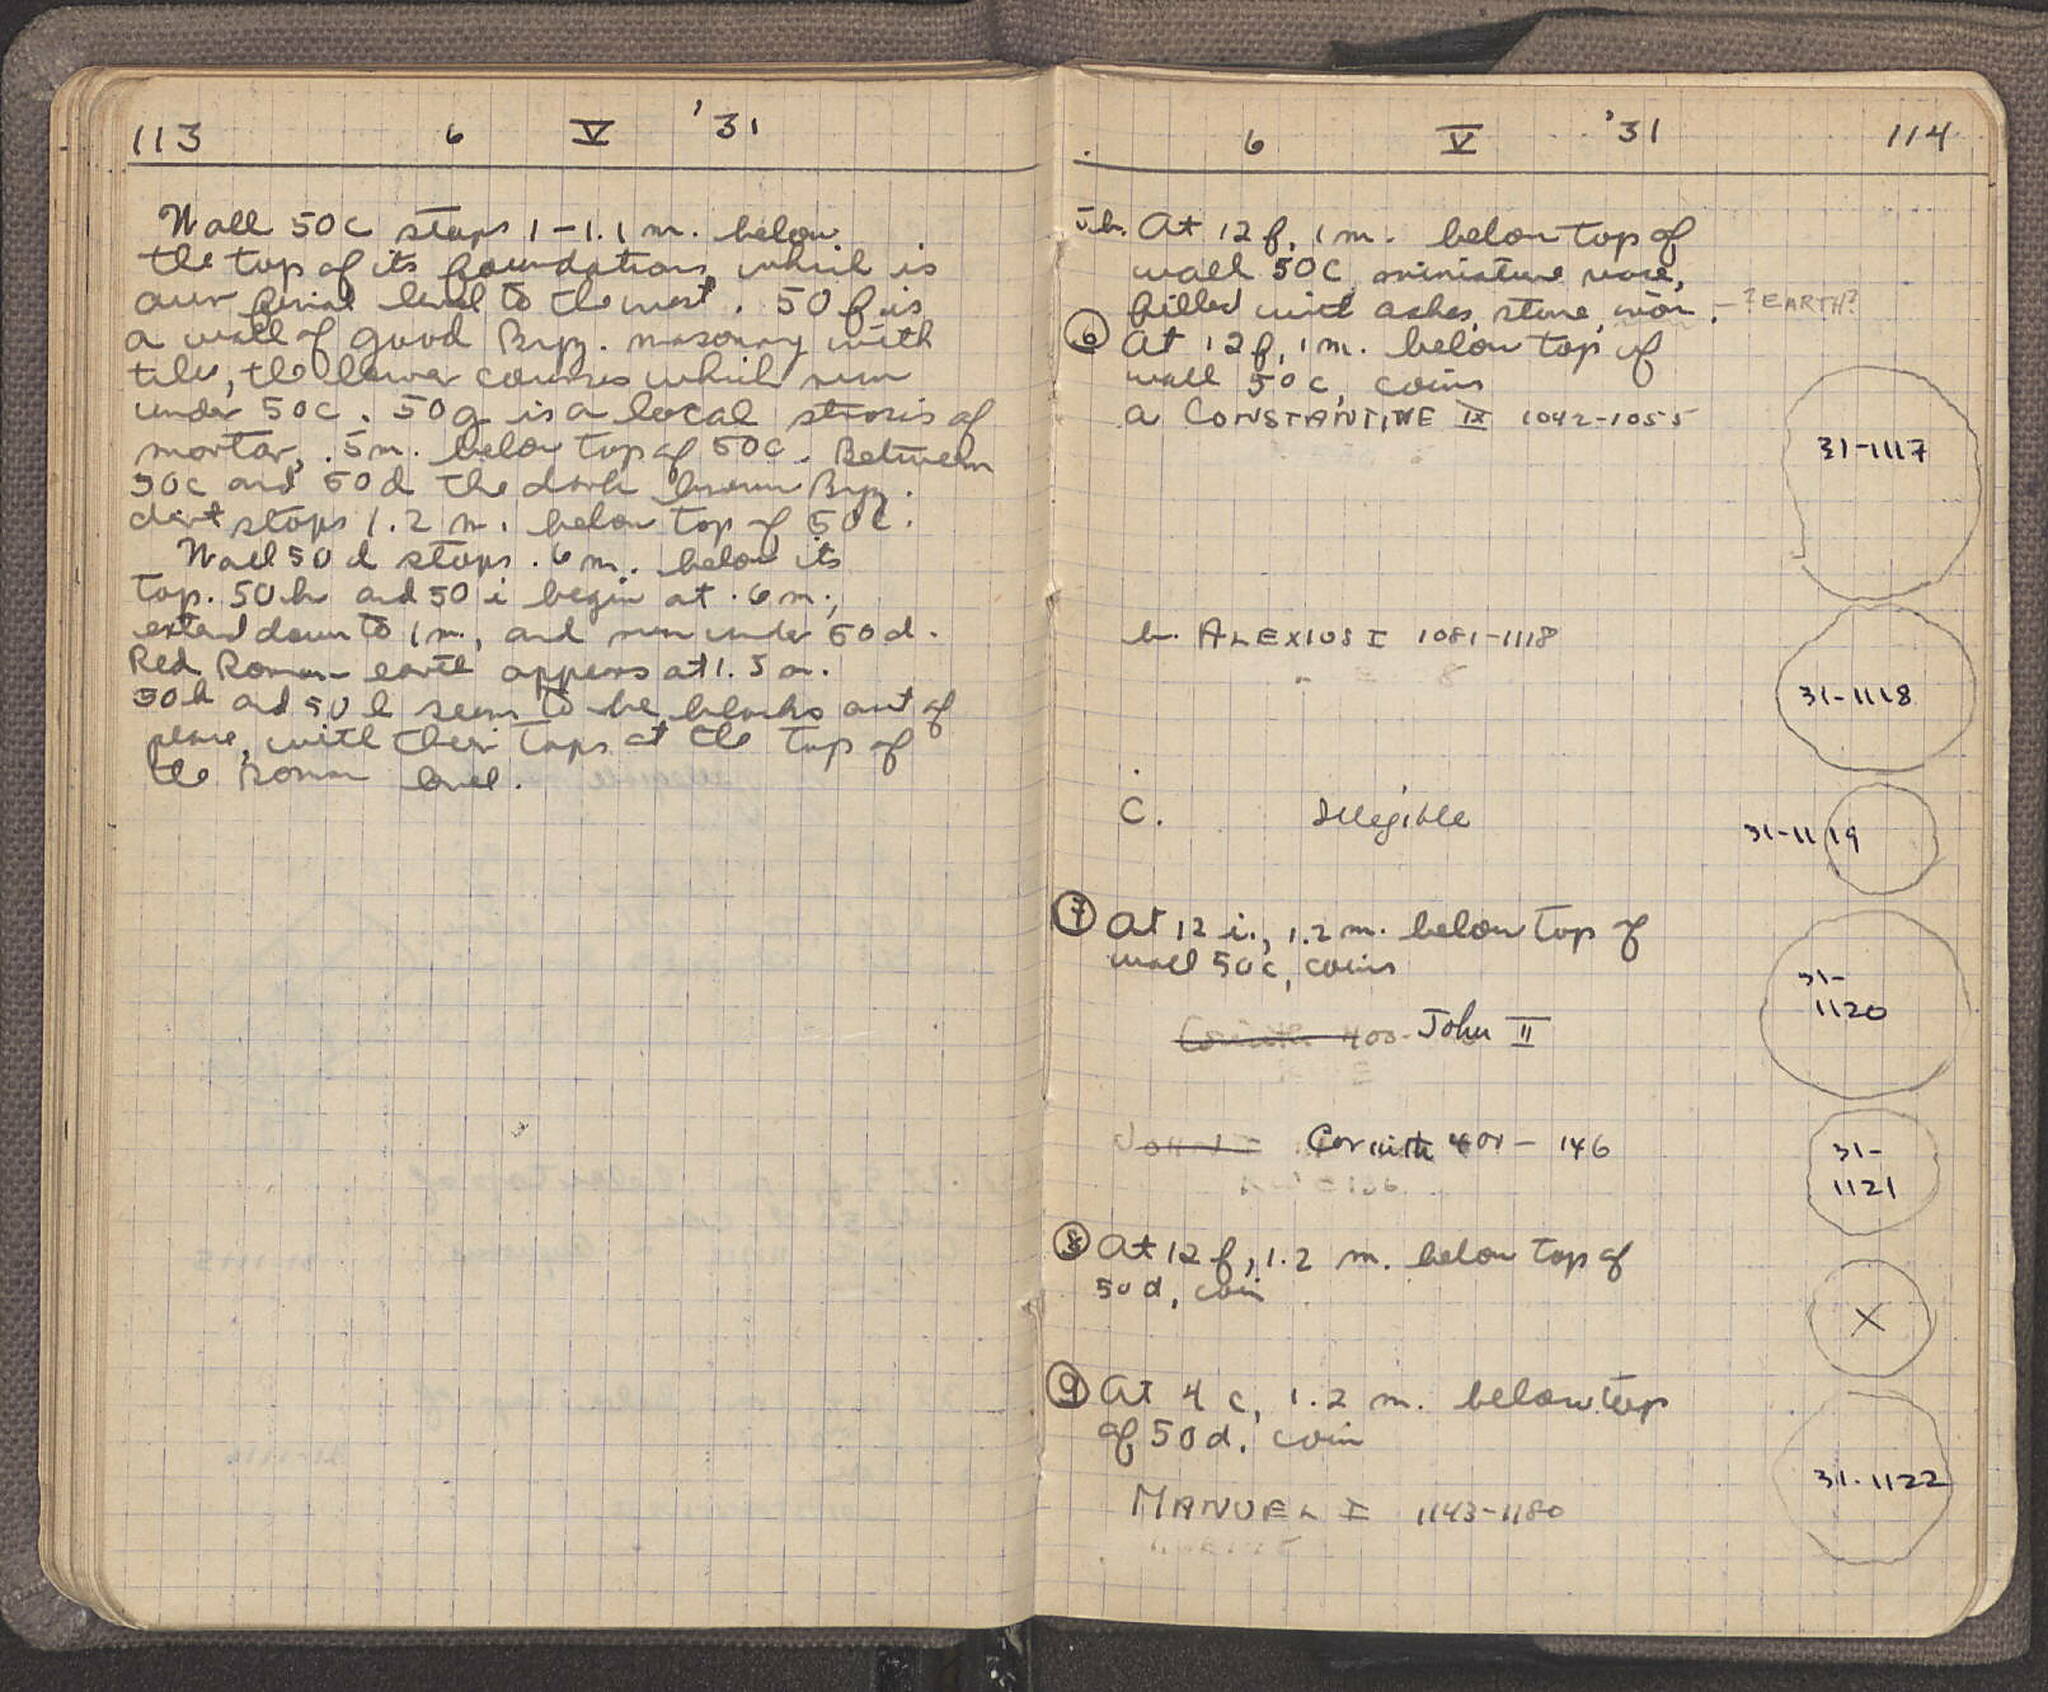 113 6 V '31
Wall 50c stops 1-1.1 m. below
the top of its foundations, which is
our final level to the west. 50 f is
a wall of good Byz. masonry with
tile, the lower courses which run
under 50c. 50g is a local strosis of
mortar, .5m. below top of 50c. Between
50c and 50d the dark brown Byz.
dirt stops 1.2 m. below top of 50c.
Wall 50d stops .6 m. below its
top. 50h and 50i begin at .6 m.,
extend down to 1m., and run under 50d.
Red Roman earth appears at 1.5 m.
50k and 50l seem to be blocks out of
place, with their tops at the top of
the Roman level.
6 V '31 114
5b. At 12 f, 1 m. below top of
wall 50c, miniature vase,
filled with ashes, stone, iron. - ? EARTH?
6 At 12 f, 1 m. below top of
wall 50c, coins
a CONSTANTINE IX 1042-1055
31-1117
b. ALEXIUS I 1081-1118
31-1118
c. Illegible
31-1119
7 At 12 i., 1.2 m. below top of
wall 50c, coins
31-
1120
Corinth 400- John II
Corinth 400 - 146
31-
1121
8 At 12 f, 1.2 m. below top of
50d, coin
X
9 At 4 c, 1.2 m. below top
of 50d, coin
31-1122
MANUEL I 1143-1180